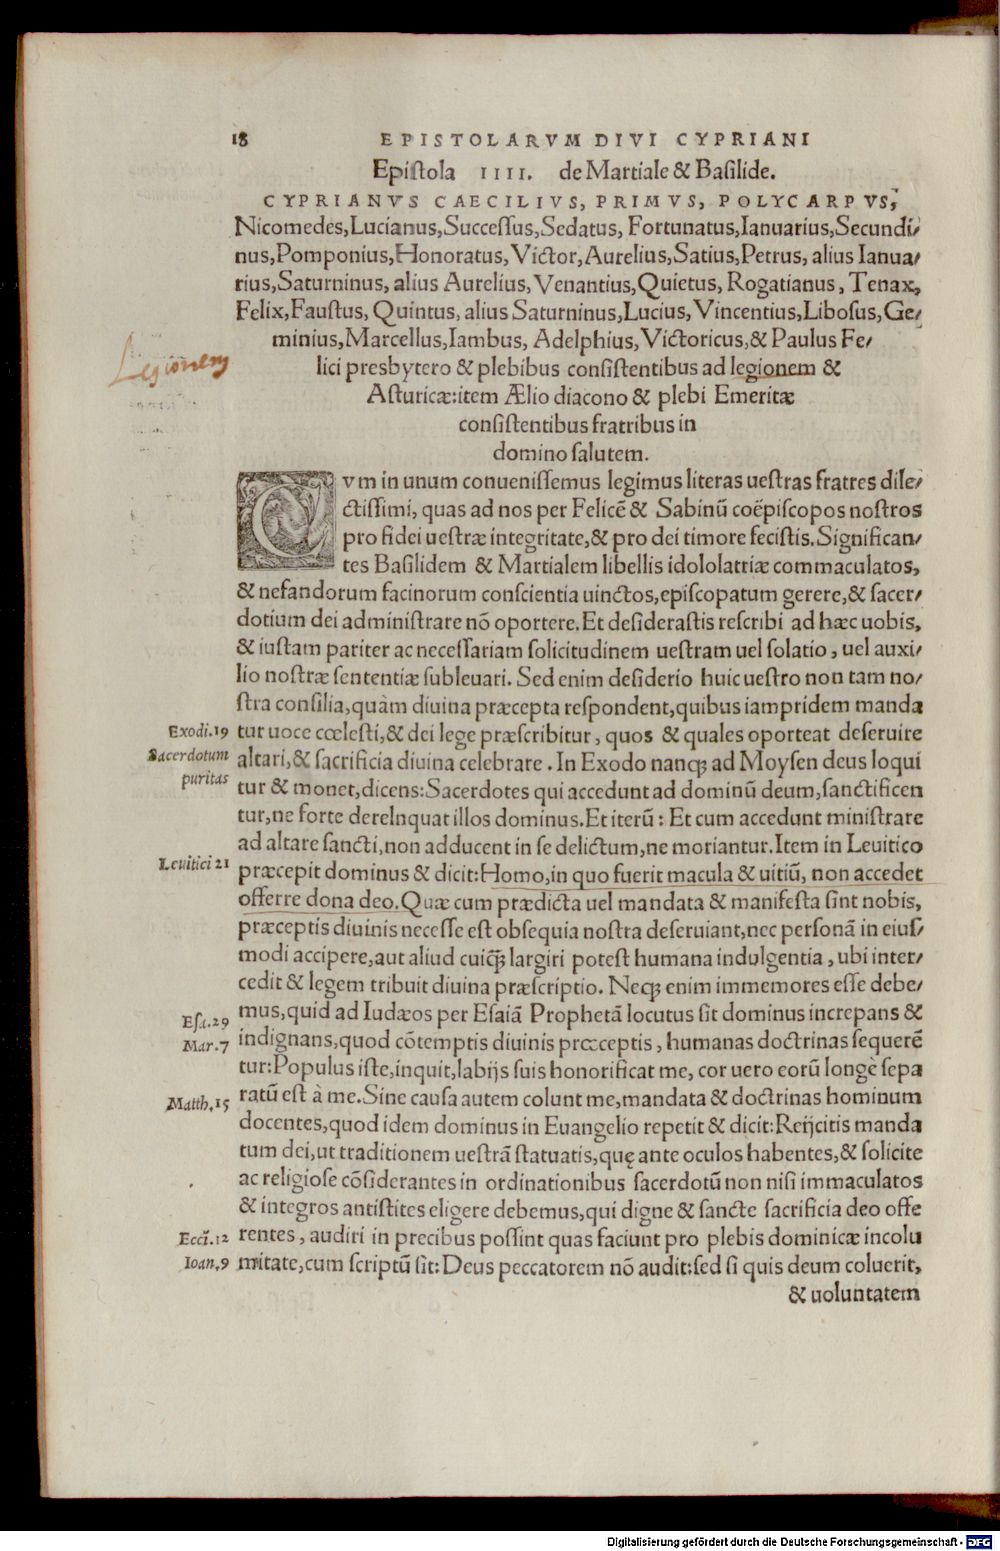 18 EPISTOLARVM DIVI CYPRIANI
Epistola IIII. de Martiale & Basilide.
CYPRIANVS CAECILIVS, PRIMVS, POLYCARPVS,
Nicomedes,Lucianus,Successus,Sedatus, Fortunatus,Ianuarius,Secundi/
nus,Pomponius,Honoratus, Victor,Aurelius,Satius,Petrus, alius Ianua/
rius,Saturninus, alius Aurelius,Venantius,Quietus, Rogatianus, Tenax,
Felix,Faustus, Quintus, alius Saturninus,Lucius, Vincentius,Libosus,Ge/
minius,Marcellus,Iambus, Adelphius,Victoricus,& Paulus Fe/
Legionem
lici presbytero & plebibus consistentibus ad legionem &
Asturicæ:item Ælio diacono & plebi Emeritæ
consistentibus fratribus in
domino salutem.
CVm in unum conuenissemus legimus literas uestras fratres dile/
ctissimi, quas ad nos per Felicē & Sabinū coëpiscopos nostros
pro fidei uestræ integritate,& pro dei timore fecistis.Significan/
tes Basilidem & Martialem libellis idololatriæ commaculatos,
& nefandorum facinorum conscientia uinctos,episcopatum gerere,& sacer/
dotium dei administrare nō oportere.Et desiderastis rescribi ad hæc uobis,
& iustam pariter ac necessariam solicitudinem uestram uel solatio, uel auxi/
lio nostræ sententiæ subleuari. Sed enim desiderio huic uestro non tam no/
stra consilia,quàm diuina præcepta respondent,quibus iampridem manda
Exodi.19
tur uoce cœlesti,& dei lege præscribitur, quos & quales oporteat deseruire
Sacerdotum
altari,& sacrificia diuina celebrare. In Exodo nanq; ad Moysen deus loqui
puritas
tur & monet,dicens:Sacerdotes qui accedunt ad dominū deum,sanctificen
tur,ne forte derelnquat illos dominus.Et iterū: Et cum accedunt ministrare
ad altare sancti,non adducent in se delictum,ne moriantur.Item in Leuitico
Leuitici 21
præcepit dominus & dicit:Homo,in quo fuerit macula & uitiū, non accedet
offerre dona deo.Quæ cum prædicta uel mandata & manifesta sint nobis,
præceptis diuinis necesse est obsequia nostra deseruiant,nec personā in eius/
modi accipere,aut aliud cuiq; largiri potest humana indulgentia, ubi inter/
cedit & legem tribuit diuina præscriptio. Neq; enim immemores esse debe/
Esa.29
mus,quid ad Iudæos per Esaiā Prophetā locutus sit dominus increpans &
Mar.7
indignans,quod cōtemptis diuinis præceptis, humanas doctrinas sequerē
tur:Populus iste,inquit,labijs suis honorificat me, cor uero eorū longè sepa
Matth.15
ratū est à me.Sine causa autem colunt me,mandata & doctrinas hominum
docentes,quod idem dominus in Euangelio repetit & dicit:Reijcitis manda
tum dei,ut traditionem uestrā statuatis,quę ante oculos habentes,& solicite
ac religiose cōsiderantes in ordinationibus sacerdotū non nisi immaculatos
& integros antistites eligere debemus,qui digne & sancte sacrificia deo offe
Eccl̄.12
rentes, audiri in precibus possint quas faciunt pro plebis dominicæ incolu
Ioan.9
mitate,cum scriptū sit: Deus peccatorem nō audit:sed si quis deum coluerit,
& uoluntatem
Digitalisierung gefördert durch die Deutsche Forschungsgemeinschaft - DFG